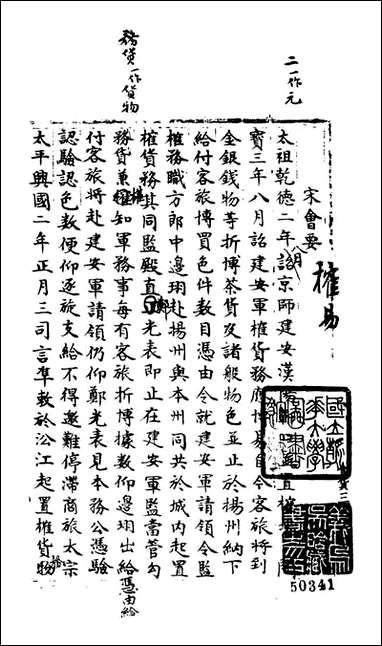 二一作元
務貨一作貨物
宋會要
榷易
太祖乾德二年八月詔京師建安漢陽
寶三年八月詔建安軍榷貨務應博易自今客旅將到
金銀錢物等折博茶貨及諸般物色並止於揚州納下
給付客旅博買色件數目憑由令就建安軍請領令監
榷務職方郎中邊珝赴揚州與本州同共於城内起置
榷貨務其同監殿直鄭光表即止在建安軍監當管勾
務貨兼權知軍務事每有客旅折博據數仰邊珝出給憑由給
付客旅將赴建安軍請領仍仰鄭光表見本務公憑驗
認驗認色數便仰逐旅支給不得邀難停滯商旅太宗
太平興國二年正月三司言準敕於沿江起置榷貨物
國立清華大學圖書館
50341